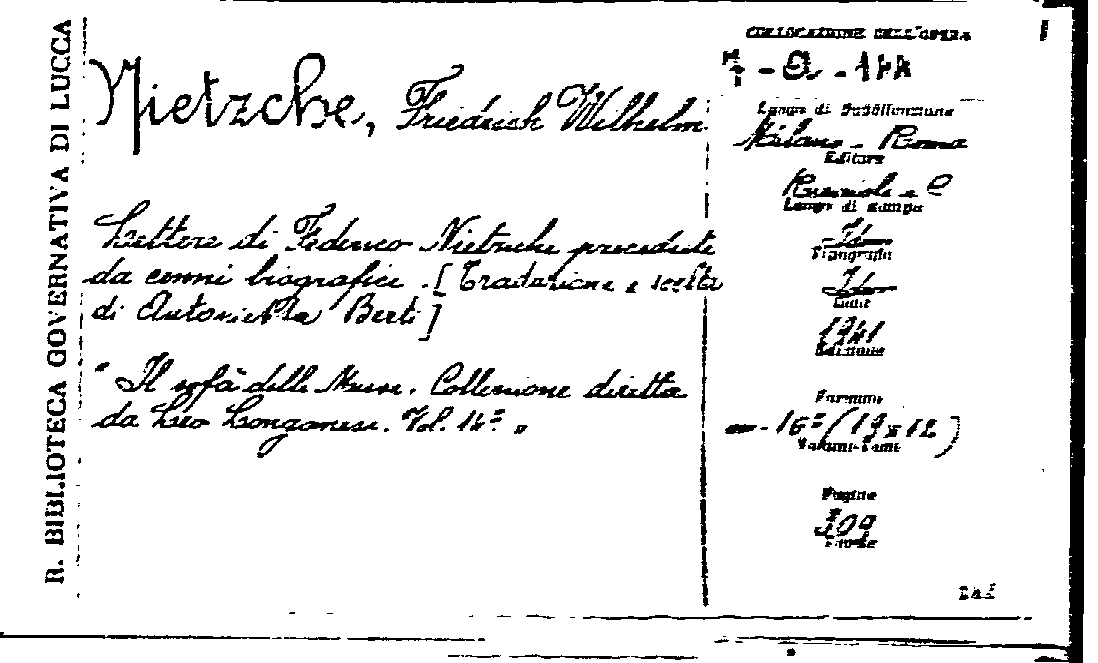 R. BIBLIOTECA GOVERNATIVA DI LUCCA
Nietzche, Friedrich Wilhelm
Lettere di Federico Nietzsche precedute
da cenni biografici. [Traduzione e scelta
di Antonietta Berti]
" Il sofà delle Muse. Collezione diretta
da Leo Longanesi. Vol. 14º "
COLLOCAZIONE DELL'OPERA
Luogo di Pubblicazione
Milano - Roma
Editore
Rizzoli e C
Luogo di stampa
Idem
Tipografia
Idem
Data
1941
Edizione
Formato
16º (19 x 12)
Volumi-Tomi
Pagine
309
Tavole